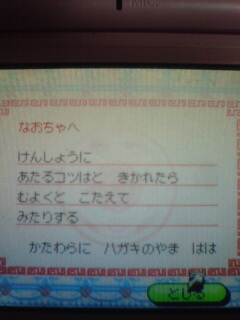 なおちゃへ
けんしょうに
あたるコツはと　きかれたら
むよくと　こたえて
みたりする
かたわらに　ハガキのやま　はは
とじる